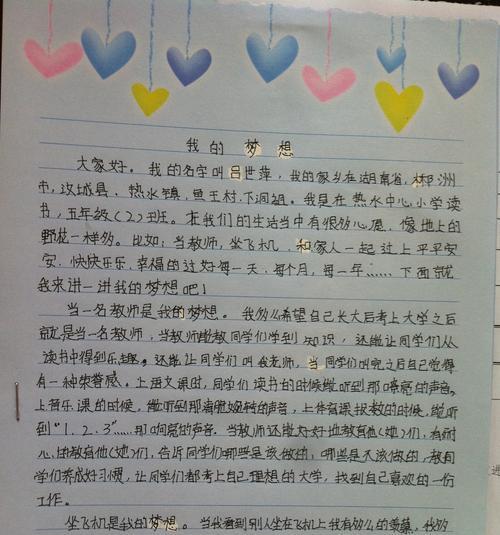 我的 梦想
大家好。我的名字叫吕世萍，我的家乡在湖南省，郴洲
市，汝城县、热水镇，鱼王村下洞组。我是在热水中心小学读
书，五年级（2）班。在我们的生活当中有很多心愿，像地上的
野花一样多。比如：当教师，坐飞机，和家人一起过上平平安
安、快快乐乐、幸福的过好每一天，每个月，每一年……下面就
我来讲一讲我的梦想吧！
当一名教师是我的梦想。我多么希望自己长大后考上大学之后
就是当一名教师，当教师能教同学们学到知识，还能让同学们从
读书中得到乐趣。还能让同学们叫我老师，当同学们叫完之后自己觉得
有一种荣誉感，上语文课时，同学们读书的时候能听到那嘹亮的声音。
上音乐课的时候，能听到那清脆婉转的声音，上体育课报数的时候，能听
到“1、2、3”……那响亮的声音。当教师还能好好地教育他（她）们，有耐
心的教育他（她）们，告诉同学们哪些是该做的，哪些是不该做的，教同
学们养成好习惯，让同学们都考上自己理想的大学，找到自己喜欢的一份
工作。
坐飞机是我的梦想。当我看到别人坐在飞机上我有多么的羡慕，我多